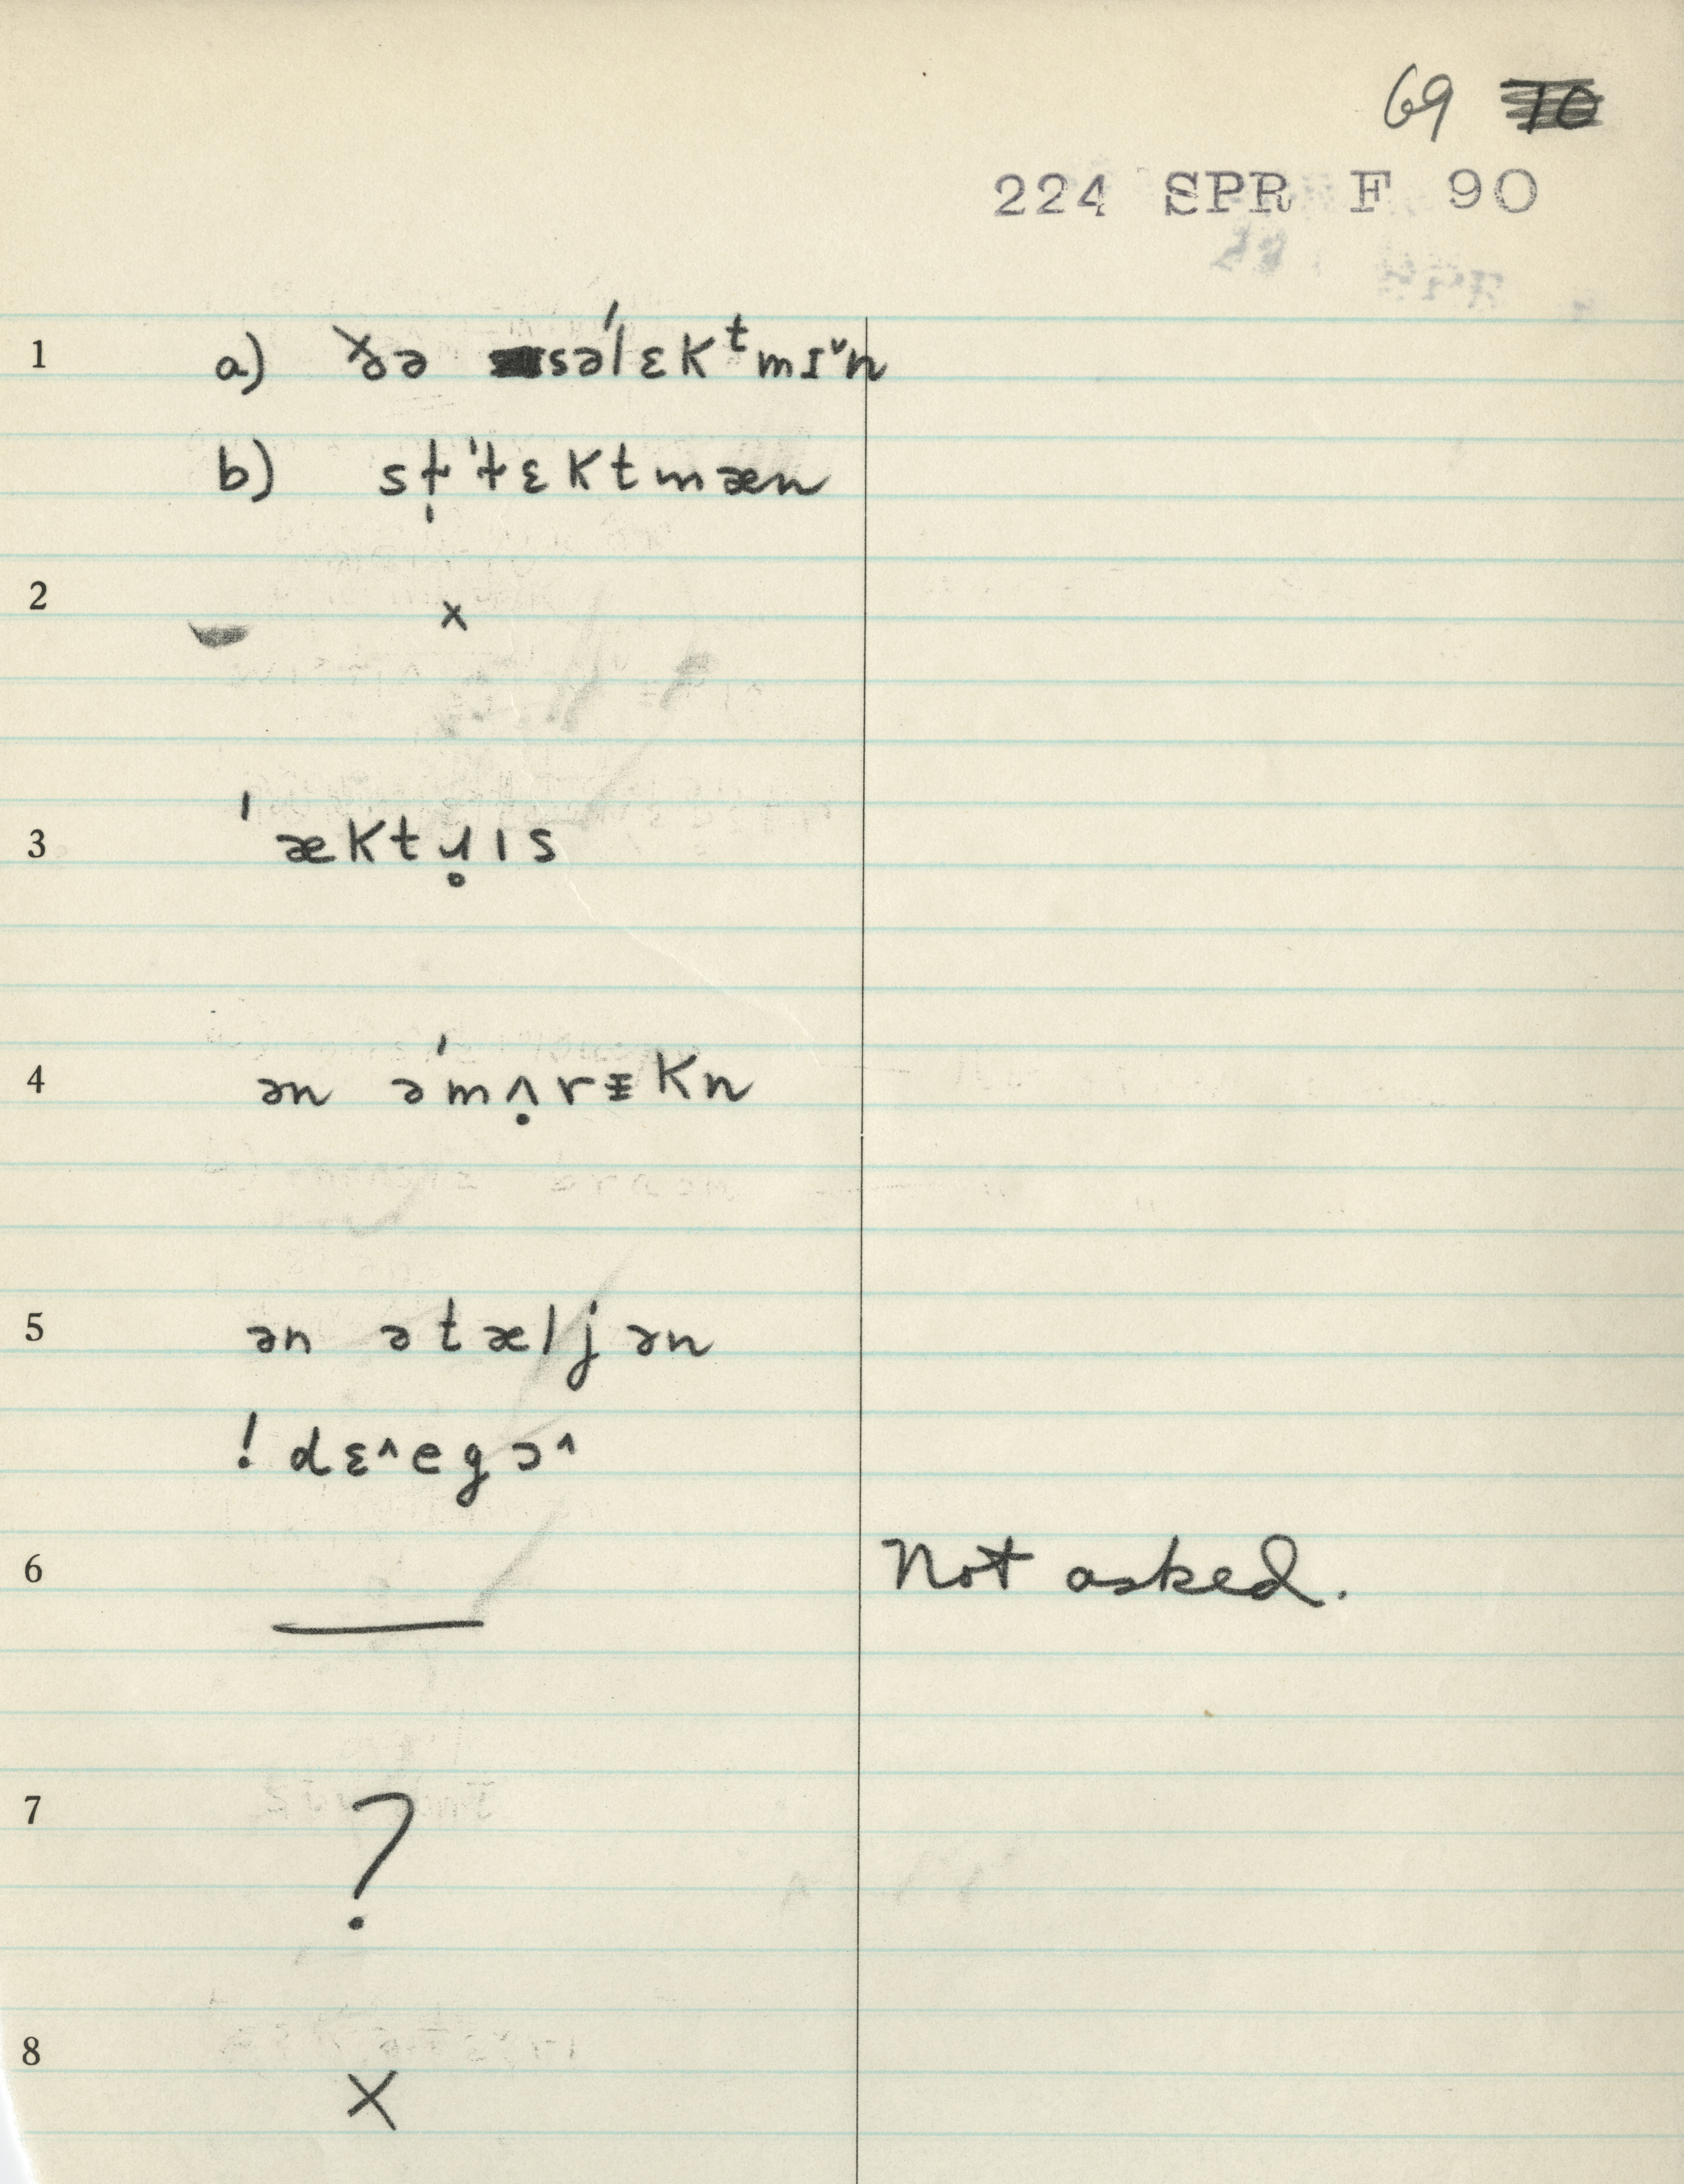 69
224 SPR F 90
1 a) ðə səˈlɛkᵗmɪˇn
b) sɫ̩ˈɫɛktmæn
2 x
3 ˈæktɹ̥ɪs
4 ən əˈmʌ̣rɪkn
5 ən ətæljən
! dɛ^egɔ^
6 — Not asked.
7 ?
8 X